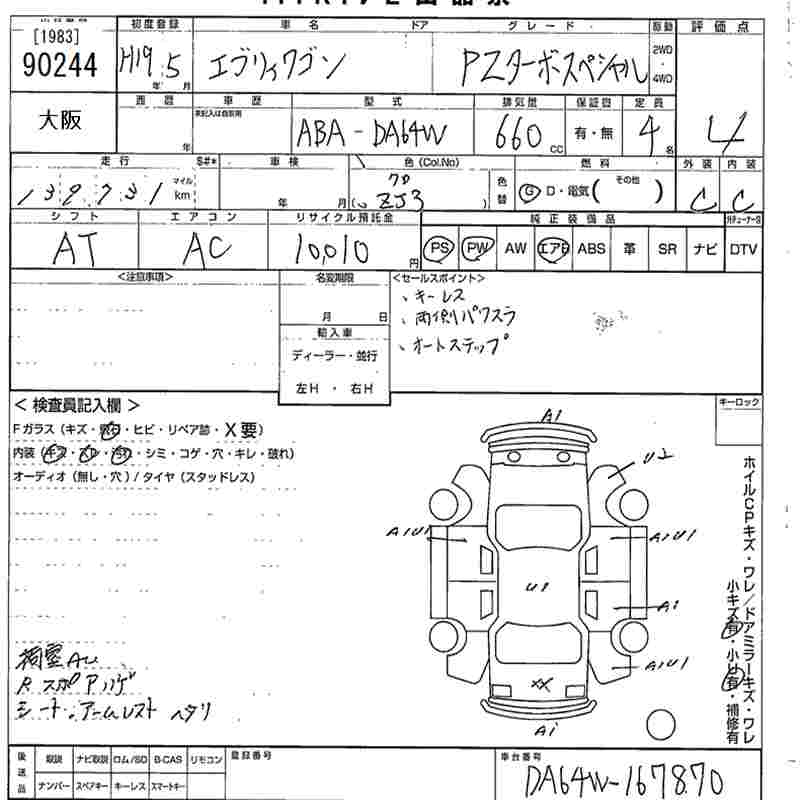 [1983]
90244
大阪
初度登録
H19 5
年 月
車名 ドア
エブリィワゴン
グレード
PZターボスペシャル
駆動
2WD
4WD
評価点
4
西暦
年
車歴
未記入は自家用
型式
ABA-DA64W
排気量
660
CC
保証書
有・無
定員
4
名
走行
139,731
マイル
km
S#*
車検
年 月
色(Col.No)
ZJ3
色替
燃料
G D・電気( その他 )
外装
C
内装
C
シフト
AT
エアコン
AC
リサイクル預託金
10,010
円
純正装備品
PS PW AW エアB ABS 革 SR ナビ DTV
<注意事項>
名変期限
月 日
輸入車
ディーラー・並行
左H ・ 右H
<セールスポイント>
、キーレス
、両側パワスラ
、オートステップ
キーロック
<検査員記入欄>
Fガラス(キズ・飛石・ヒビ・リペア跡・X要)
内装(キズ・スレ・汚れ・シミ・コゲ・穴・キレ・破れ)
オーディオ(無し・穴)/タイヤ(スタッドレス)
A1
U2
A1U1
A1U1
U1
A1
A1U1
XX
A1
ホイルCPキズ・ワレ/ドアミラーキズ・ワレ
小キズ有・小U有・補修有
荷室AU
Rスポアハゲ
シート・アームレスト ヘタリ
後送品
取説 ナビ取説 ロム/SD B-CAS リモコン
ナンバー スペアキー キーレス スマートキー
登録番号
車台番号
DA64W-167870